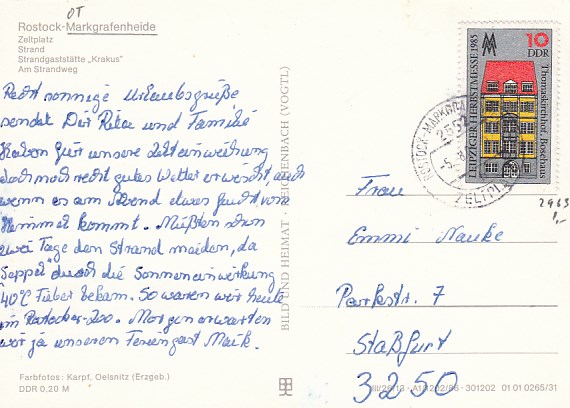 OT
Rostock-Markgrafenheide
Zeltplatz
Strand
Strandgaststätte „Krakus"
Am Strandweg
Recht sonnige Urlaubsgrüße
sendet Dir Rita und Familie
Haben für unsere Zelteinweihung
doch noch recht gutes Wetter erwischt, auch
wenn es am Abend etwas feucht vom
Himmel kommt. Mußten schon
zwei Tage den Strand meiden, da
Seppel durch die Sonneneinwirkung
40°C Fieber bekam. So waren wir heute
im Rostocker-Zoo. Morgen erwarten
wir ja unseren Feriengast Maik.
Farbfotos: Karpf, Oelsnitz (Erzgeb.)
DDR 0,20 M
BILD UND HEIMAT · REICHENBACH (VOGTL)
LEIPZIGER HERBSTMESSE 1985
MM
10
DDR
Thomaskirchhof Bosehaus
ROSTOCK-MARKGRA
ZELTPL
Frau
Emmi Nauke
Parkstr. 7
Staßfurt
3250
2963
1,-
III/26/13 A1/1202/85 301202 01 01 0265/31